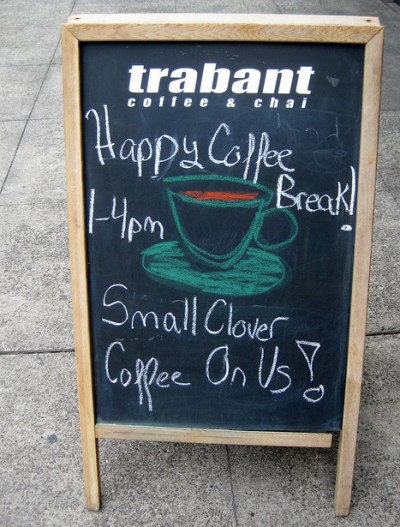 trabant
coffee & chai
Happy Coffee
Break!
1-4pm
Small Clover
Coffee On Us!